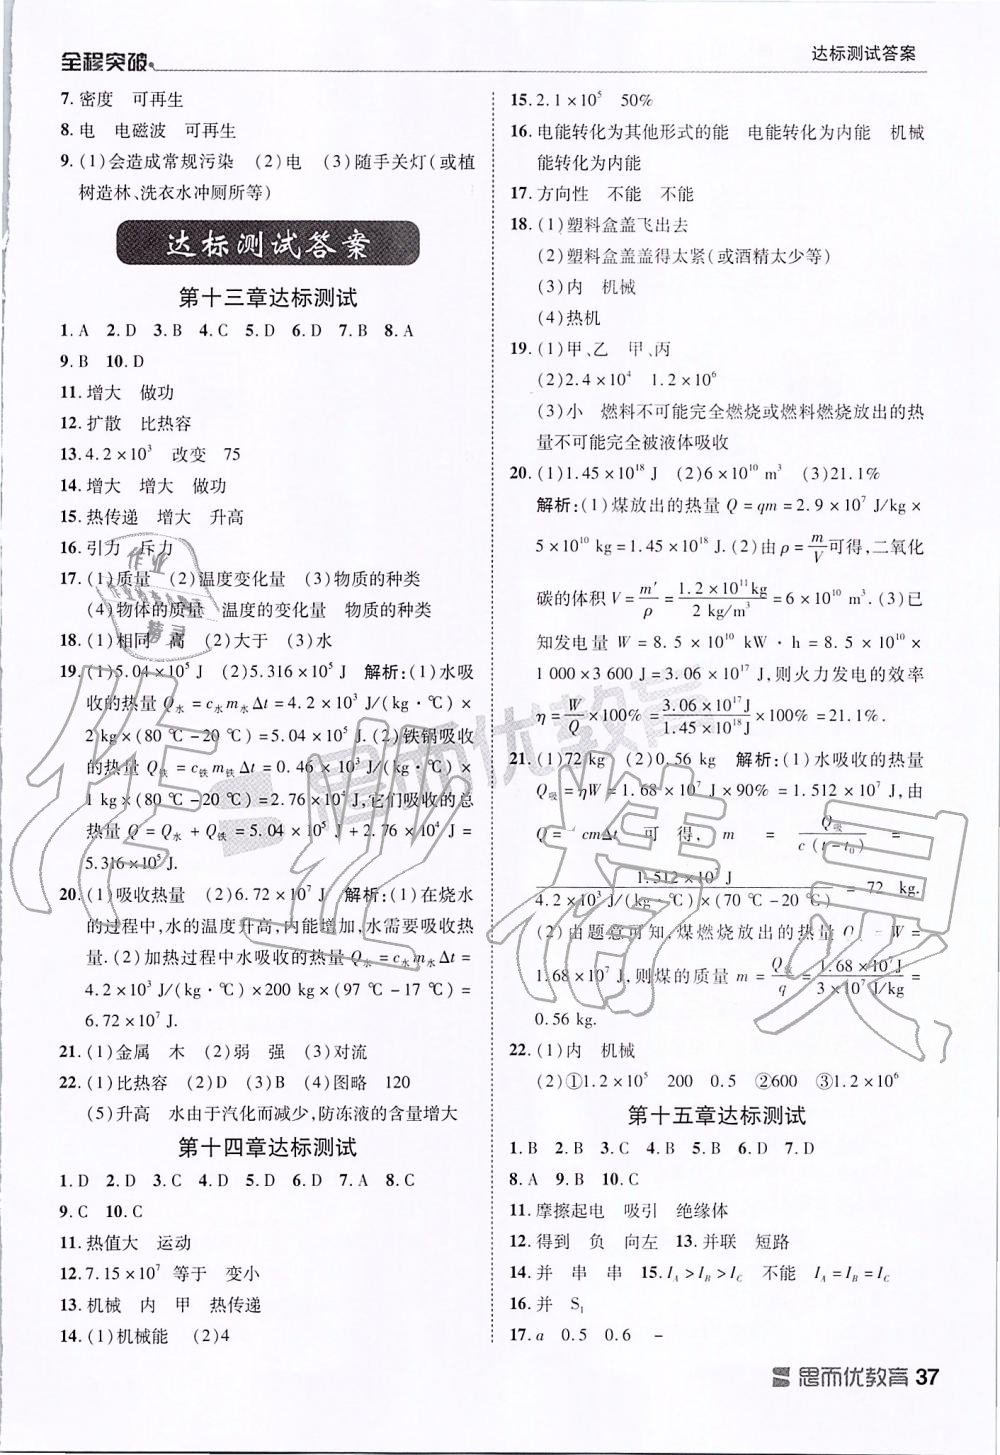 全程突破
达标测试答案
7. 密度 可再生
8. 电 电磁波 可再生
9. (1)会造成常规污染 (2)电 (3)随手关灯(或植
树造林、洗衣水冲厕所等)
达标测试答案
第十三章达标测试
1. A 2. D 3. B 4. C 5. D 6. D 7. B 8. A
9. B 10. D
11. 增大 做功
12. 扩散 比热容
13. 4.2×10³ 改变 75
14. 增大 增大 做功
15. 热传递 增大 升高
16. 引力 斥力
17. (1)质量 (2)温度变化量 (3)物质的种类
(4)物体的质量 温度的变化量 物质的种类
18. (1)相同 高 (2)大于 (3)水
19. (1)5.04×10⁵ J (2)5.316×10⁵ J 解析:(1)水吸
收的热量 Q水=c水m水Δt=4.2×10³ J/(kg·℃)×
2 kg×(80 ℃-20 ℃)=5.04×10⁵ J. (2)铁锅吸收
的热量 Q铁=c铁m铁Δt=0.46×10³ J/(kg·℃)×
1 kg×(80 ℃-20 ℃)=2.76×10⁴ J,它们吸收的总
热量 Q=Q水+Q铁=5.04×10⁵ J+2.76×10⁴ J=
5.316×10⁵ J.
20. (1)吸收热量 (2)6.72×10⁷ J 解析:(1)在烧水
的过程中,水的温度升高,内能增加,水需要吸收热
量. (2)加热过程中水吸收的热量 Q水=c水m水Δt=
4.2×10³ J/(kg·℃)×200 kg×(97 ℃-17 ℃)=
6.72×10⁷ J.
21. (1)金属 木 (2)弱 强 (3)对流
22. (1)比热容 (2)D (3)B (4)图略 120
(5)升高 水由于汽化而减少,防冻液的含量增大
第十四章达标测试
1. D 2. D 3. C 4. D 5. D 6. D 7. A 8. C
9. C 10. C
11. 热值大 运动
12. 7.15×10⁷ 等于 变小
13. 机械 内 甲 热传递
14. (1)机械能 (2)4
15. 2.1×10⁵ 50%
16. 电能转化为其他形式的能 电能转化为内能 机械
能转化为内能
17. 方向性 不能 不能
18. (1)塑料盒盖飞出去
(2)塑料盒盖盖得太紧(或酒精太少等)
(3)内 机械
(4)热机
19. (1)甲、乙 甲、丙
(2)2.4×10⁴ 1.2×10⁶
(3)小 燃料不可能完全燃烧或燃料燃烧放出的热
量不可能完全被液体吸收
20. (1)1.45×10¹⁸ J (2)6×10¹⁰ m³ (3)21.1%
解析:(1)煤放出的热量 Q=qm=2.9×10⁷ J/kg×
5×10¹⁰ kg=1.45×10¹⁸ J. (2)由 ρ=m/V可得,二氧化
碳的体积 V=m′/ρ=1.2×10¹¹kg/2 kg/m³=6×10¹⁰ m³. (3)已
知发电量 W=8.5×10¹⁰ kW·h=8.5×10¹⁰×
1 000×3 600 J=3.06×10¹⁷ J,则火力发电的效率
η=W/Q×100%=3.06×10¹⁷J/1.45×10¹⁸J×100%=21.1%.
21. (1)72 kg (2)0.56 kg 解析:(1)水吸收的热量
Q吸=ηW=1.68×10⁷ J×90%=1.512×10⁷ J,由
Q=cmΔt 可得,m=Q吸/c(t-t₀)=
1.512×10⁷ J/4.2×10³ J/(kg·℃)×(70 ℃-20 ℃)=72 kg.
(2)由题意可知,煤燃烧放出的热量 Q放=W=
1.68×10⁷ J,则煤的质量 m=Q放/q=1.68×10⁷J/3×10⁷ J/kg=
0.56 kg.
22. (1)内 机械
(2)①1.2×10⁵ 200 0.5 ②600 ③1.2×10⁶
第十五章达标测试
1. B 2. B 3. C 4. B 5. B 6. D 7. D
8. A 9. B 10. C
11. 摩擦起电 吸引 绝缘体
12. 得到 负 向左 13. 并联 短路
14. 并 串 串 15. I_A>I_B>I_C 不能 I_A=I_B=I_C
16. 并 S₁
17. a 0.5 0.6 -
思而优教育 37
作业精灵
思而优教育